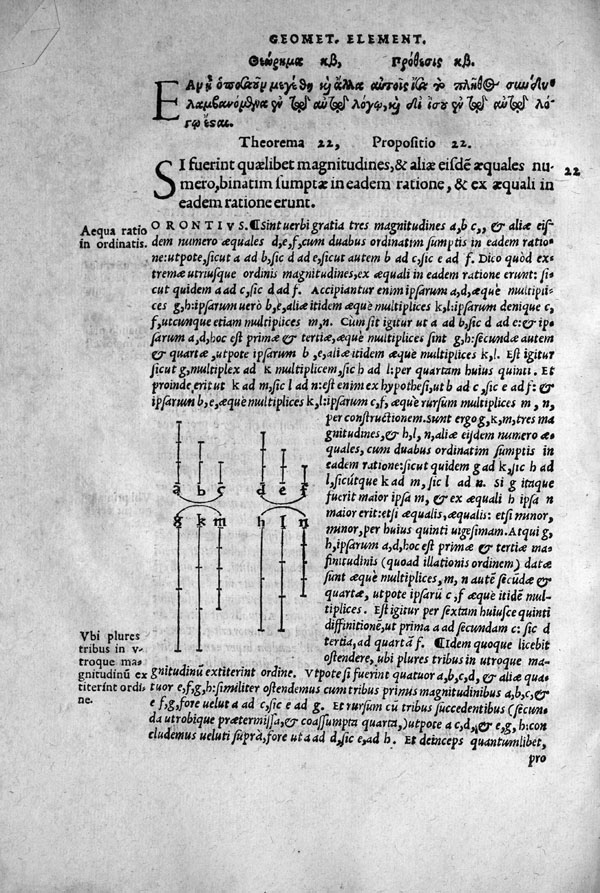 GEOMET. ELEMENT.
Θεώρημα κβ, Πρόθεσις κβ.
ΕΑν ᾖ ὁποσαοῦν μεγέθη καὶ ἄλλα αὐτοῖς ἴσα τὸ πλῆθος
λαμβανόμενα ἐν τῷ αὐτῷ λόγῳ, καὶ δι ἴσου ἐν τῷ αὐτῷ λό-
γῳ ἔσαι.
Theorema 22, Propositio 22.
SI fuerint quælibet magnitudines, & aliæ eisdē æquales nu-
mero, binatim sumptæ in eadem ratione, & ex æquali in
eadem ratione erunt.
22
Aequa ratio
in ordinatis.
ORONTIVS. ¶Sint uerbi gratia tres magnitudines a, b, c,, & aliæ eis-
dem numero æquales d, e, f, cum duabus ordinatim sumptis in eadem ratio-
ne: utpote, sicut a ad b, sic d ad e, sicut autem b ad c, sic e ad f. Dico quòd ex-
tremæ utriusque ordinis magnitudines, ex æquali in eadem ratione erunt: si-
cut quidem a ad c, sic d ad f. Accipiantur enim ipsarum a, d, æquè multipli-
ces g, h: ipsarum uerò b, e, aliæ itidem æquè multiplices k, l: ipsarum denique c,
f, utcunque etiam multiplices m, n. Cum sit igitur ut a ad b, sic d ad e: & ip-
sarum a, d, hoc est primæ & tertiæ, æquè multiplices sint g, h: secundæ autem
& quartæ, utpote ipsarum b, e, aliæ itidem æquè multiplices k, l. Est igitur
sicut g, multiplex ad k multiplicem, sic h ad l: per quartam huius quinti. Et
proinde erit ut k ad m, sic l ad n: est enim ex hypothesi, ut b ad c, sic e ad f: &
ipsarum b, e, æquè multiplices k, l: ipsarum c, f, æquè rursum multiplices m, n,
per constructionem. Sunt ergo g, k, m, tres ma-
gnitudines, & h, l, n, aliæ eisdem numero æ-
quales, cum duabus ordinatim sumptis in
eadem ratione: sicut quidem g ad k, sic h ad
l, sicútque k ad m, sic l ad n. Si g itaque
fuerit maior ipsa m, & ex æquali h ipsa n
maior erit: etsi æqualis, æqualis: etsi minor,
minor, per huius quinti uigesimam. Atqui g,
h, ipsarum a, d, hoc est primæ & tertiæ ma-
gnitudinis (quoad illationis ordinem) datæ
sunt æquè multiplices, m, n autē secūdæ &
quartæ, utpote ipsarū c, f æquè itidē mul-
tiplices. Est igitur per sextam huiusce quinti
diffinitionē, ut prima a ad secundam c: sic d
tertia, ad quartā f. ¶Idem quoque licebit
ostendere, ubi plures tribus in utroque ma-
a b c d e f
g k m h l n
Vbi plures
tribus in v-
troque ma-
gnitudinū ex
titerint ordi-
ne.
gnitudinū extiterint ordine. Vtpote si fuerint quatuor a, b, c, d, & aliæ qua-
tuor e, f, g, h: similiter ostendemus cum tribus primus magnitudinibus a, b, c, &
e, f, g, fore uelut a ad c, sic e ad g. Et rursum cū tribus succedentibus (secun-
da utrobique prætermissa, & coassumpta quarta,) utpote a c, d, & e, g, h: con
cludemus ueluti suprà, fore ut a ad d, sic e, ad h. Et deinceps quantumlibet,
pro